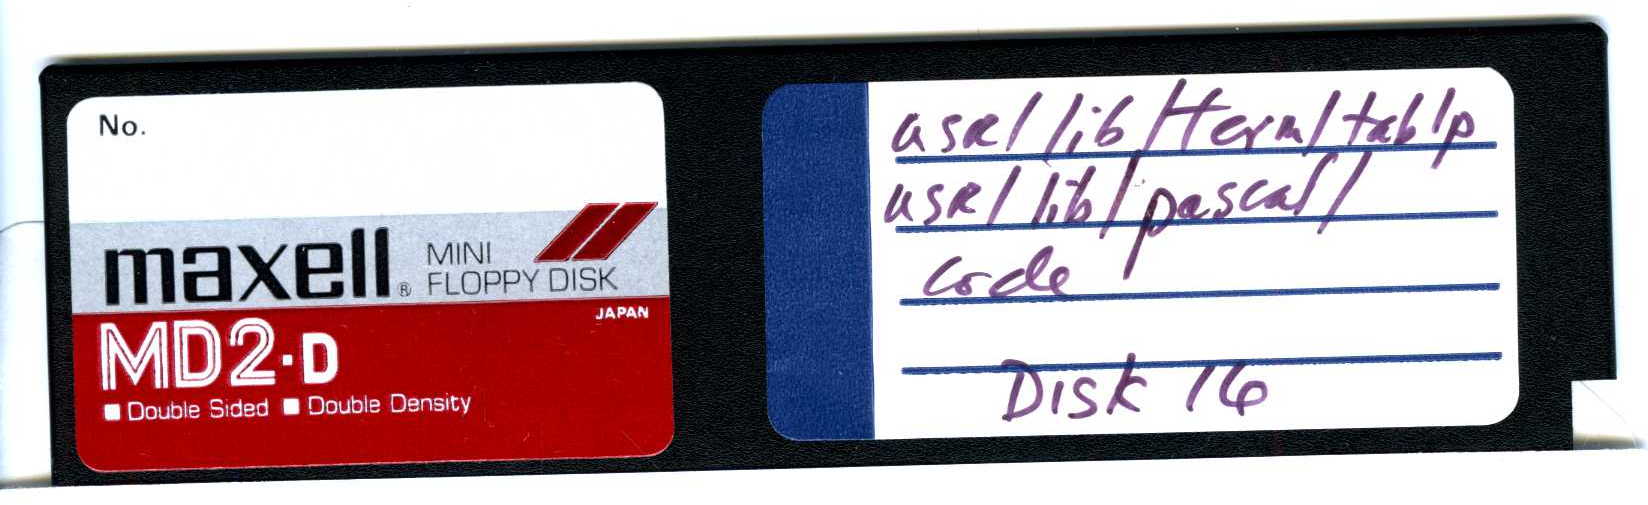 No.
maxell® MINI FLOPPY DISK
JAPAN
MD2-D
Double Sided Double Density
usr/lib/term/tab/p
usr/lib/pascal/
code
Disk 16